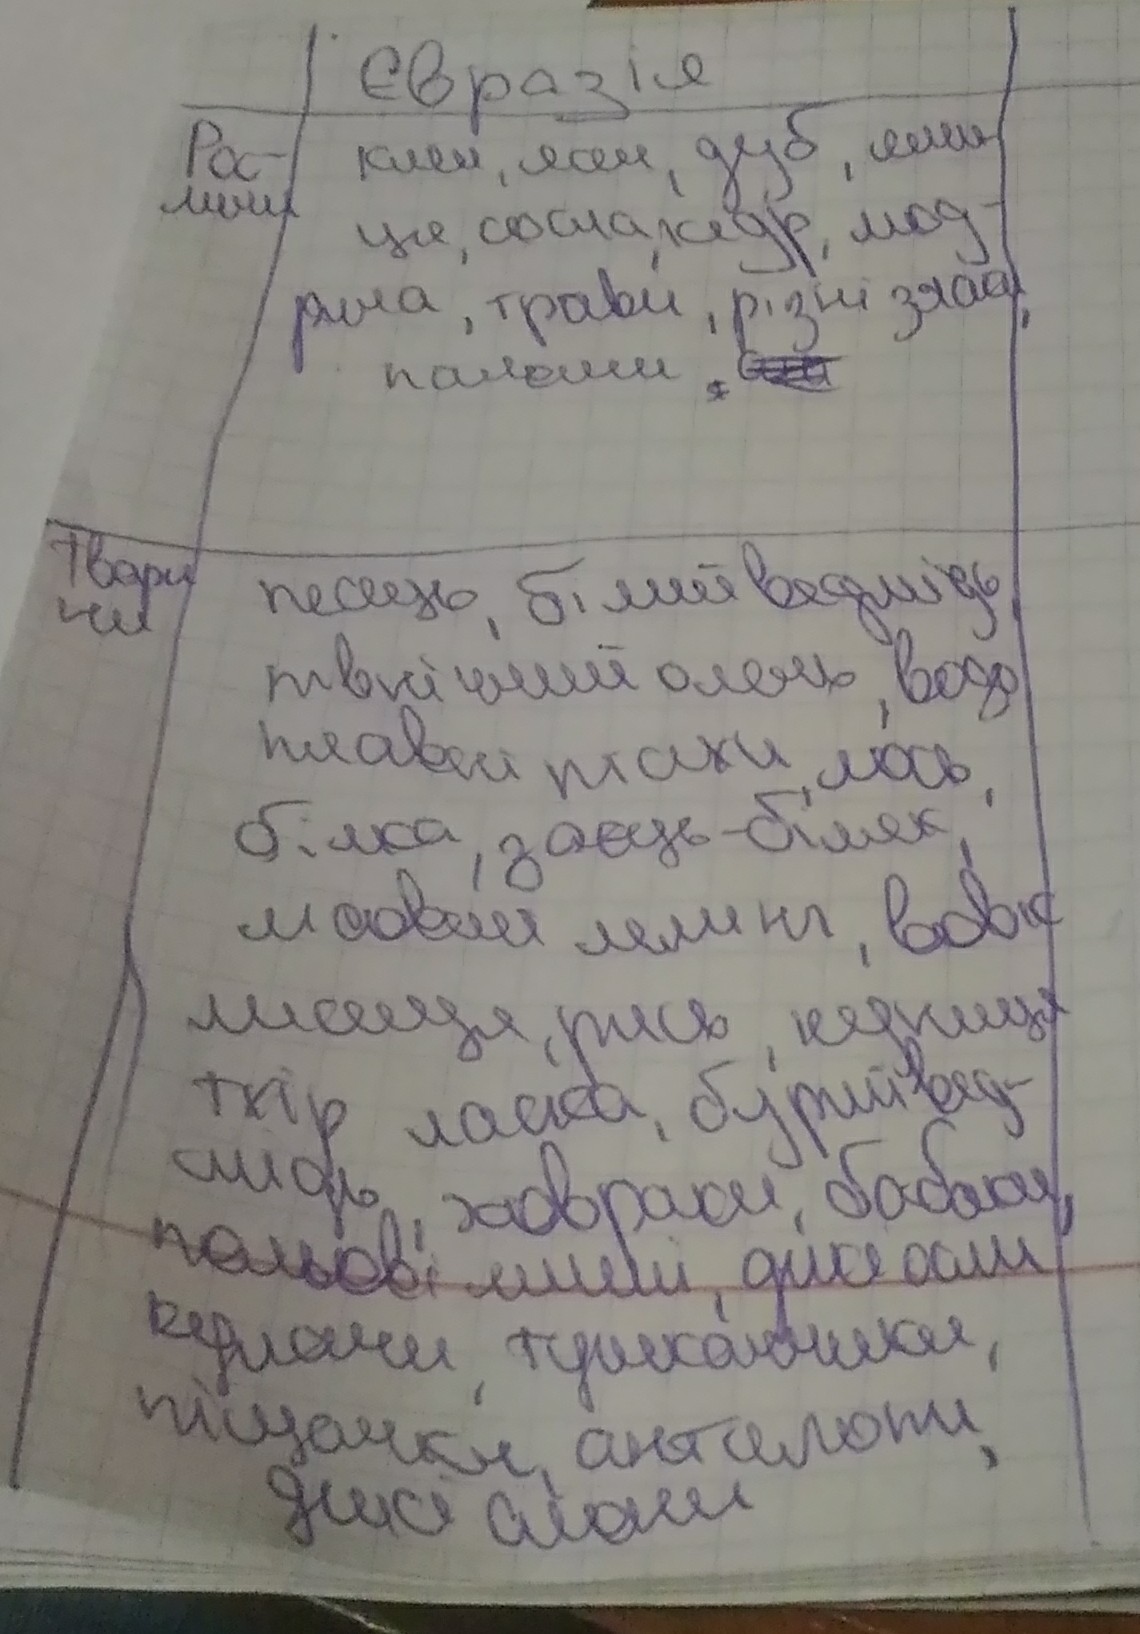 Євразія
Рос-
лини
клен, ясен, дуб, яли-
ця, сосна, кедр, мод-
рина, трави, різні злаки,
пальми.
Твари
ни
песець, білий ведмідь,
північний олень, водо
плавні птахи, лось,
білка, заєць-біляк,
лісовий лемінг, вовк
лисиця, рись, куниця
тхір ласка, бурий вед-
мідь, жовраки, бабаки,
польові миші, дикі осли
кулани, тушканчики,
піщанки, антилопи,
дикі слони